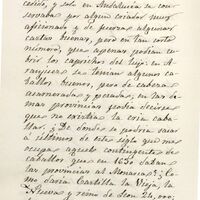 cedido, y solo en Andalucia se con
servaba por algun criador muy
aficionado á de fueras algunas
castas buenas, pero en tan corto
número, que apenas podian cu
brir los caprichos del lujo: en A
ranjuez se tenian algunos ca
ballos buenos, pero de cabezas
acarneradas y pesadas, en las de
mas provincias podria decirse
que no existia la cria caba
llar; ¿De donde se podria sacar
á últimos de este siglo que nos
ocupa aquel contingente de
caballos que en 1630 daban
las provincias al Monarca? ¿Co
mo daria Castilla la Vieja, la
Nueva y reino de Leon 24,000;